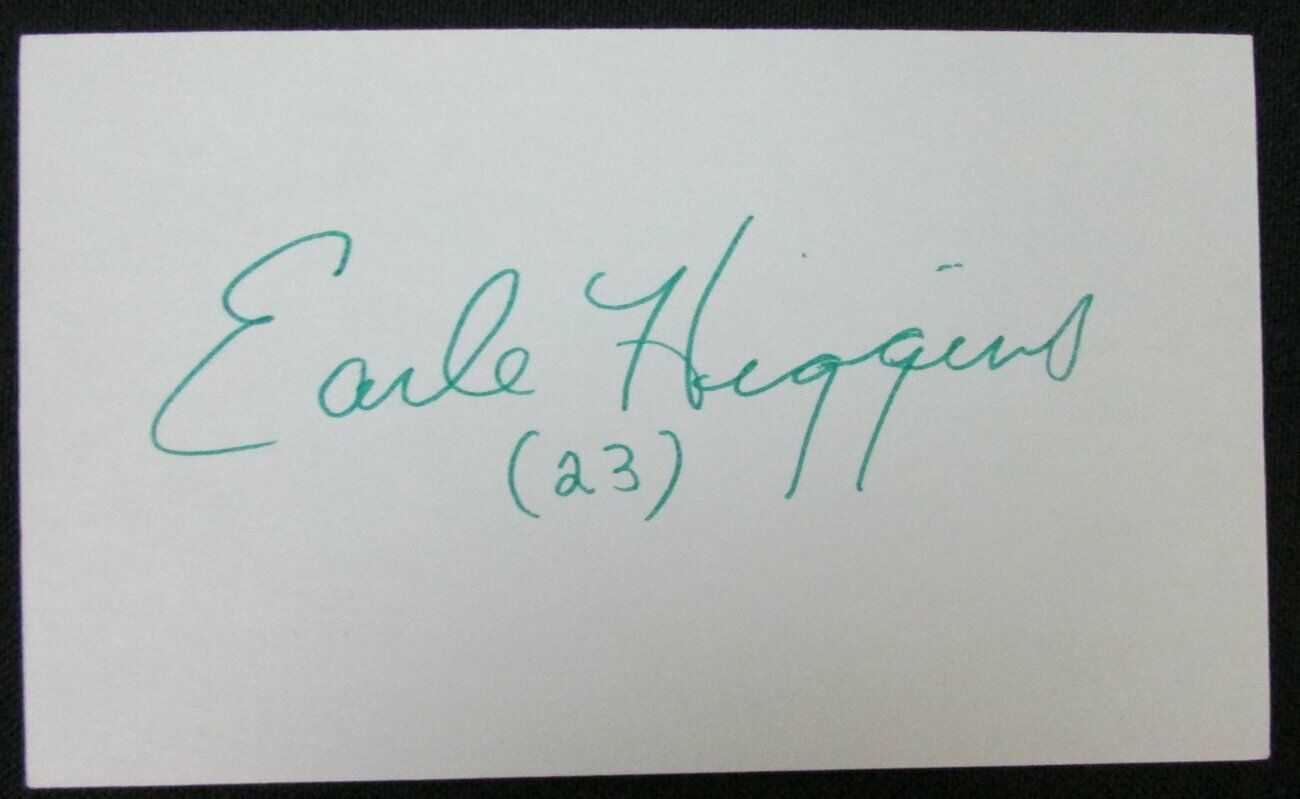 Earle Higgins
(23)